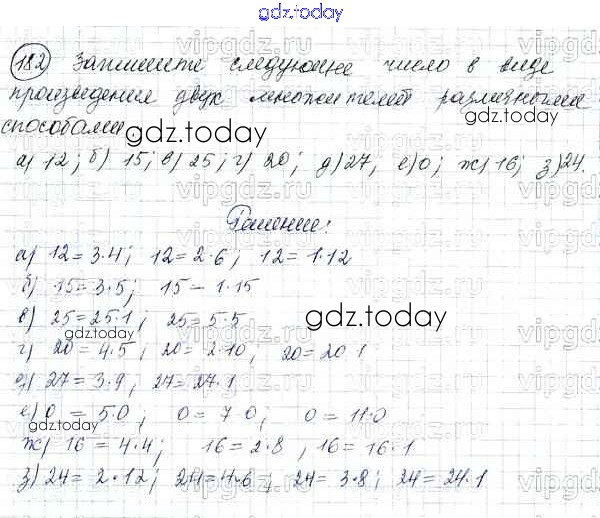 gdz.today
182 Запишите следующее число в виде
произведения двух множителей различными
способами.
gdz.today
а) 12; б) 15; в) 25; г) 20; д) 27; е) 0; ж) 16; з) 24.
Решение:
а) 12 = 3·4; 12 = 2·6; 12 = 1·12
б) 15 = 3·5; 15 = 1·15
в) 25 = 25·1; 25 = 5·5
gdz.today
г) 20 = 4·5; 20 = 2·10, 20 = 20·1
д) 27 = 3·9; 27 = 27·1
е) 0 = 5·0; 0 = 7·0; 0 = 11·0
ж) 16 = 4·4; 16 = 2·8, 16 = 16·1
з) 24 = 2·12; 24 = 4·6; 24 = 3·8; 24 = 24·1
gdz.today
vipgdz.ru